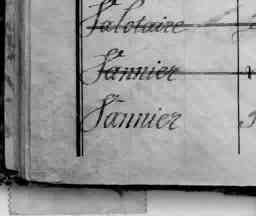 Salotaire
Vannier
Vannier